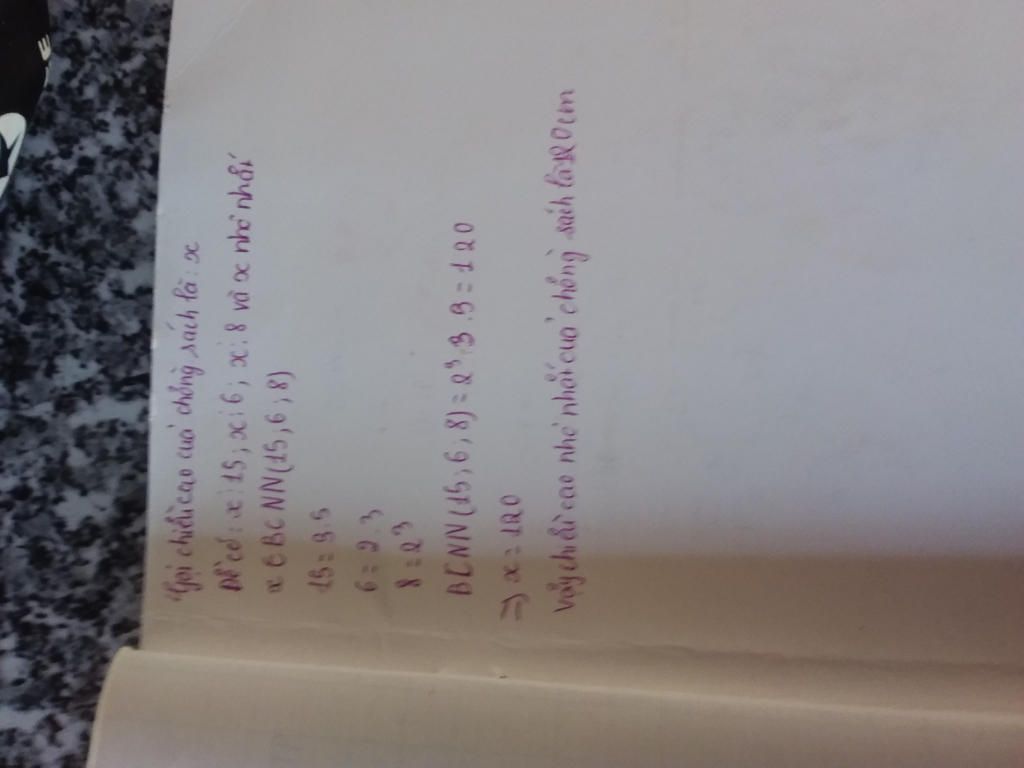 Gọi chiều cao của chồng sách là: x
Đề có: x⋮15; x⋮6; x⋮8 và x nhỏ nhất
x ∈ BCNN(15; 6; 8)
15 = 3.5
6 = 2.3
8 = 2³
BCNN(15; 6; 8) = 2³.3.5 = 120
=> x = 120
Vậy chiều cao nhỏ nhất của chồng sách là 120cm